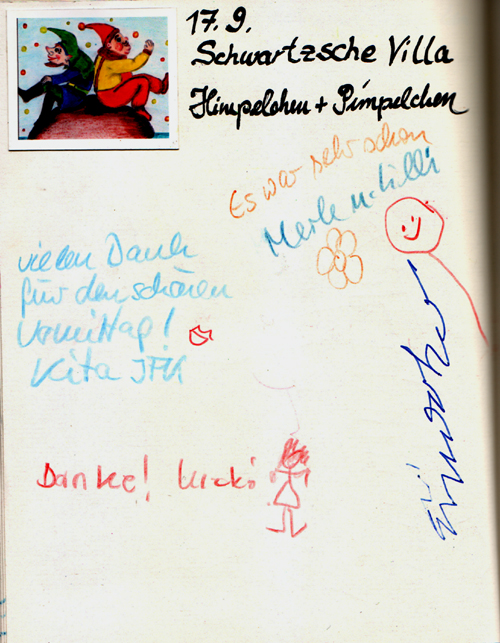 17.9.
Schwartzsche Villa
Himpelchen + Pimpelchen
Es war sehr schön
Merle u. Lilli
vielen Dank
für den schönen
Vormittag!
Kita JFK
Danke!